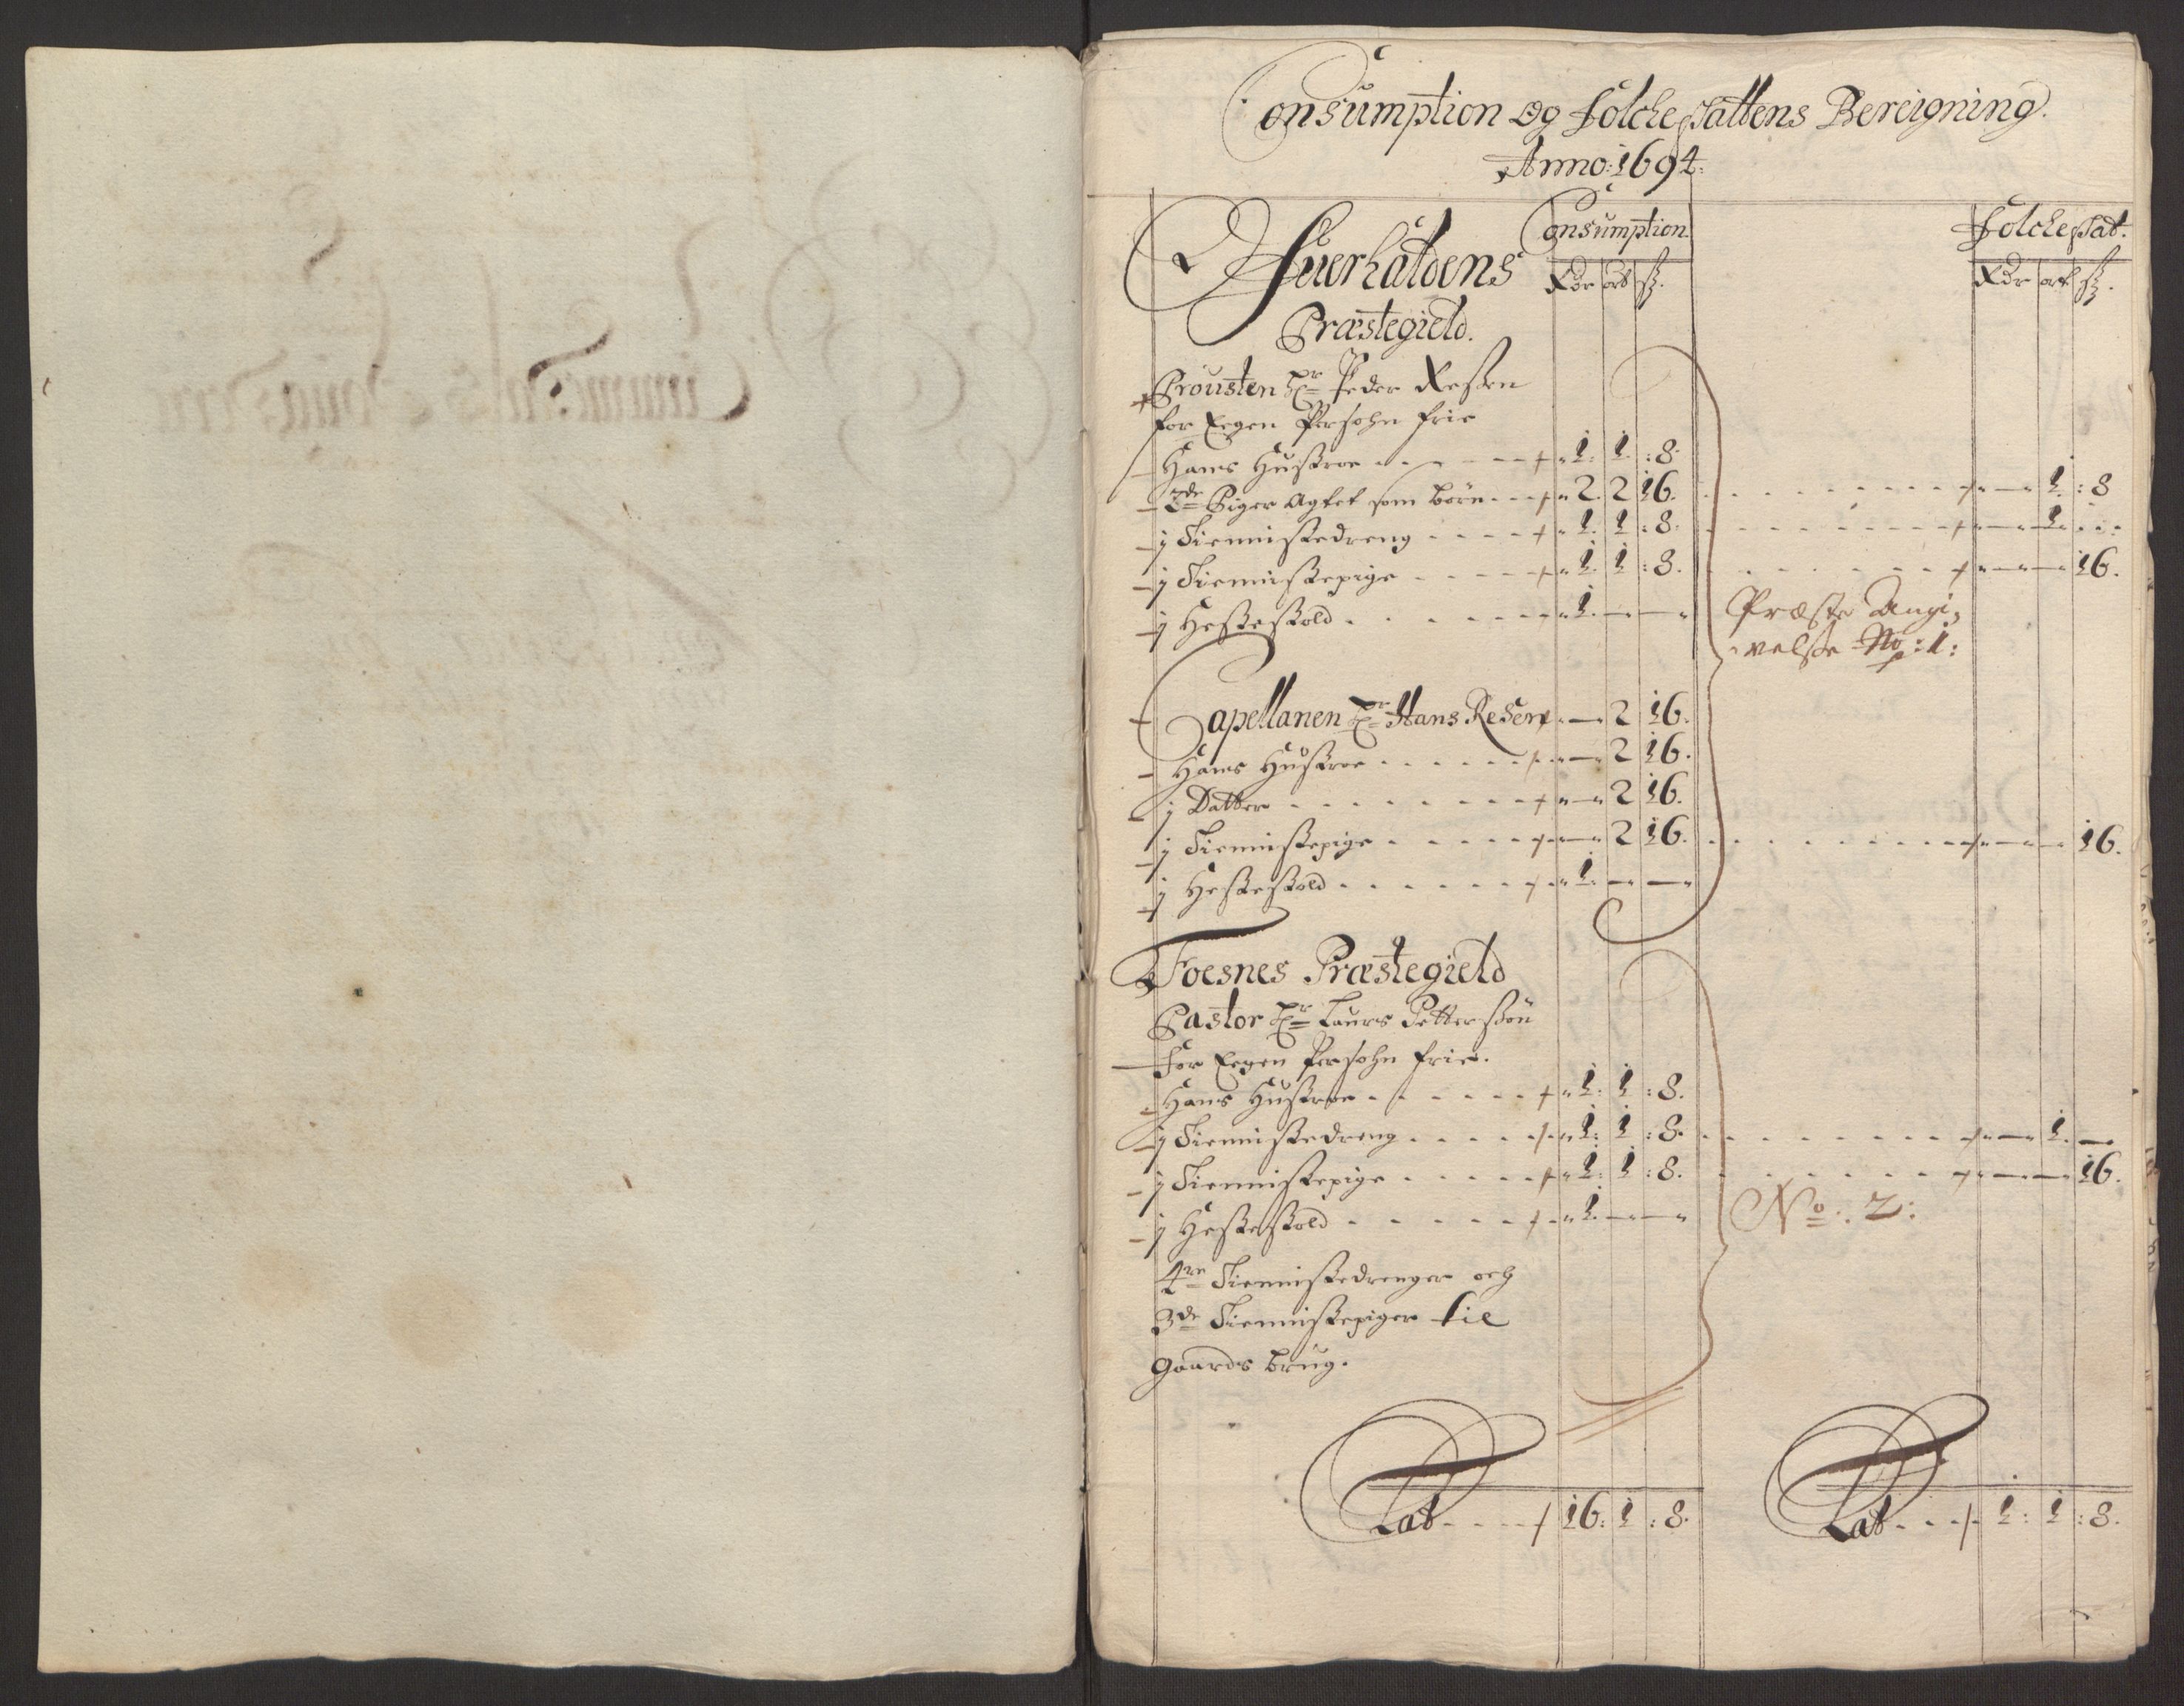 Consumption Og Folche Skattens Bereigning.
Anno: 1694.
Consumption. Folche Skat.
Rdr ort ß. Rdr ort ß.
Offuerhaldens
Præstegield.
Prousten Hr Peder Resen
for Eegen Persohn frie
Hans Hustroe - - - - 1. 1. : 8.
2de Piger Agtet som børn - - - 2. 2 16. - - - - 1. : 8
j Tiennistedreng - - - - 1. 1 : 8. - - - - 1.
j Tiennistepige - - - - 1. 1 : 8. - - - - 16.
j Hesteskold - - - - 1. — —
Præste Angi,
velße No: 1:
Capellanen Hr Hans Resen — 2 16.
Hans Hustroe - - - - — 2 16.
j Datter - - - - — 2 16.
j Tiennistepige - - - - — 2 16. - - - - 16.
j Hesteskold - - - - 1. — —
Foesnes Præstegield
Pastor Hr Laurs Pettersøn
For Eegen Persohn frie.
Hans Hustroe - - - - 1. 1 : 8.
j Tiennistedreng - - - - 1: 1 : 8. - - - - 1. —
j Tiennistepige - - - - 1: 1 : 8. - - - - 16.
j Hesteskold - - - - 1. — —
No. 2:
4re Tiennistedrenger och
3de Tiennistepiger til
Gaards brug.
Lat - - - 16: 1 : 8. Lat - - - 1: 1 : 8.